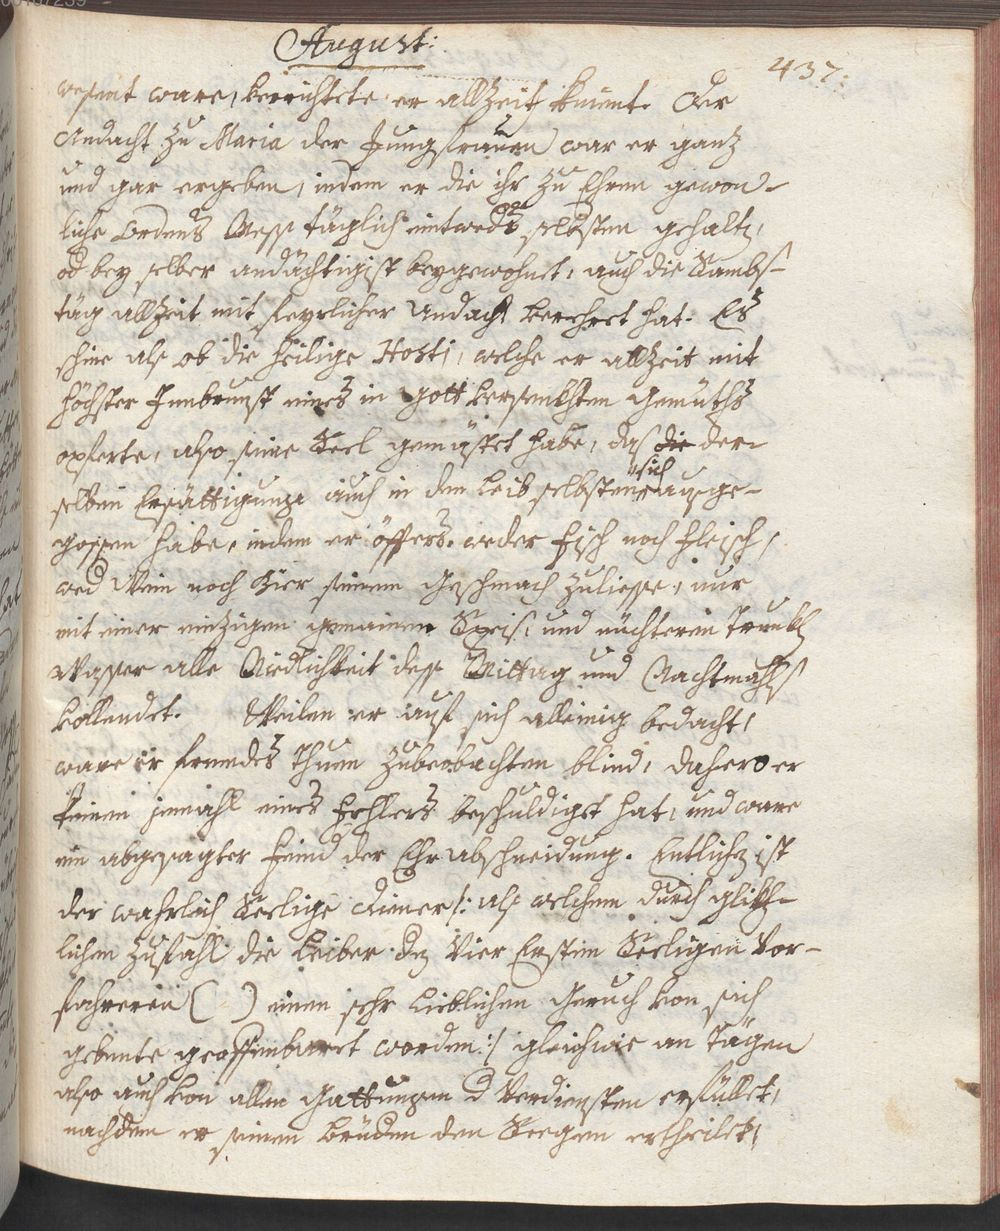 August:
437:
wesent ware, verrichtete er allzeit knient. Der
Andacht zu Maria der Jungfrauen war er ganz
und gar ergeben, indem er die ihr zu Ehren gewon-
liche Ordens Mess täglich entweders selbsten gehalten,
od bey selber andächtigist beygewohnet, auch die Sambs-
täg allzeit mit feyrlicher Andacht verehret hat. Es
schine als ob die heilige Hosti, welche er allzeit mit
höchster Innbrunst eines in Gott versenkhten Gemüths
opferte, also seine Seel gemästet habe, daß die der-
selben Ersättigunge auch in den Leib selbsten sich ausge-
gossen habe, indem er öffters weder Fisch noch Fleisch,
wed Wein noch Bier seinem Geschmach zuliesse, nur
mit einer einzigen gemainen Speis, und nüchteren Trunkh
Wasser alle Niedlichkeit dess Mittag und Nachtmahls
vollendet. Weilen er auf sich alleinig bedacht,
ware er fremdes Thuen zubeobachten blind, dahero er
keinen jemahl eines Fehlers beschuldiget hat, und ware
ein abgesagter Feind der Ehrabschneidung. Entlich ist
der wahrlich Seelige Diener /: als welchem durch glikh-
lichen Zufahl die Leiber der Vier Ersten Seeligen Vor-
fahreren ( ) einen sehr lieblichen Geruch von sich
gebente geoffenbaret worden :/ gleichwie an Tägen
also auch von allen Gattungen d Verdiensten erfüllet,
nachdem er seinen Brüdern den Seegen ertheilet,